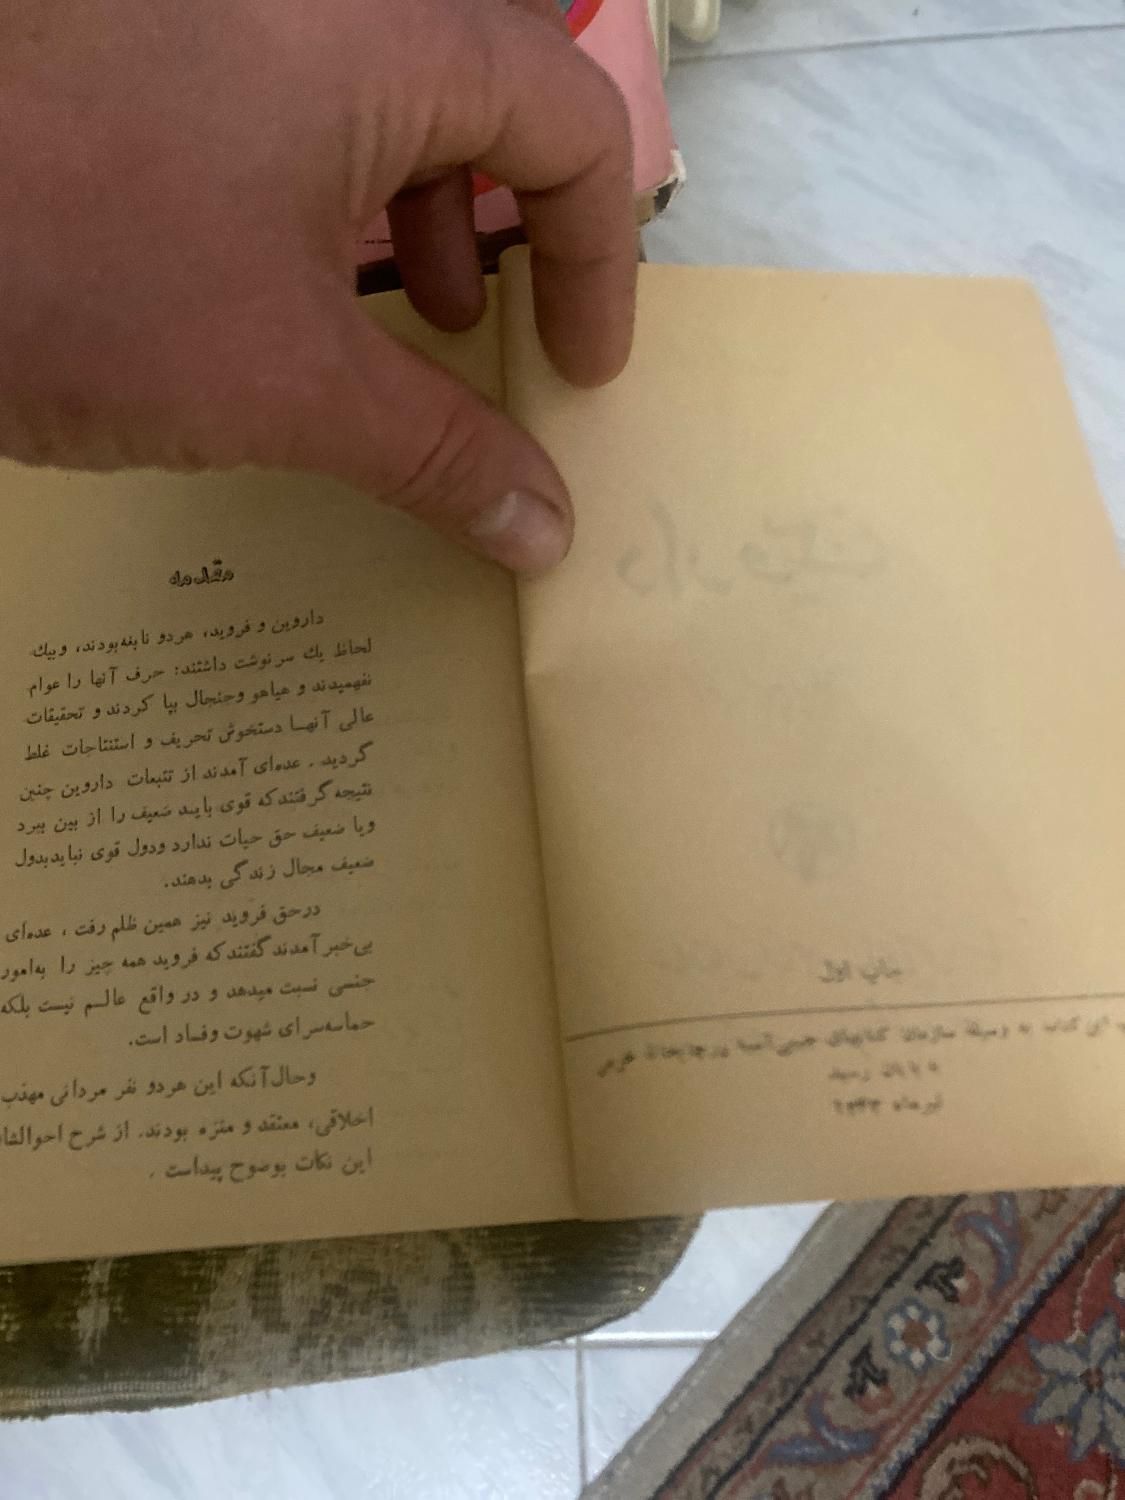 چاپ اول
این کتاب به وسیلهٔ سازمان کتابهای جیبی
پایان رسید
تیرماه ۱۳۴۳
مقدمه
داروین و فروید، هردو نابغه‌بودند، وبیك
لحاظ یك سرنوشت داشتند: حرف آنها را عوام
نفهمیدند و هیاهو وجنجال بپا کردند و تحقیقات
عالی آنهـا دستخوش تحریف و استنتاجات غلط
گردید . عده‌ای آمدند از تتبعات داروین چنین
نتیجه گرفتندکه قوی بایـد ضعیف را از بین ببرد
ویا ضعیف حق حیات ندارد ودول قوی نبایدبدول
ضعیف مجال زندگی بدهند.
درحق فروید نیز همین ظلم رفت ، عده‌ای
بی‌خبر آمدندگفتندکه فروید همه چیز را به‌امور
جنسی نسبت میدهد و در واقع عالـم نیست بلکه
حماسه‌سرای شهوت وفساد است.
وحال‌آنکه این هردو نفر مردانی مهذب
اخلاقی، معتقد و منزه بودند. از شرح احوالشان
این نکات بوضوح پیداست .